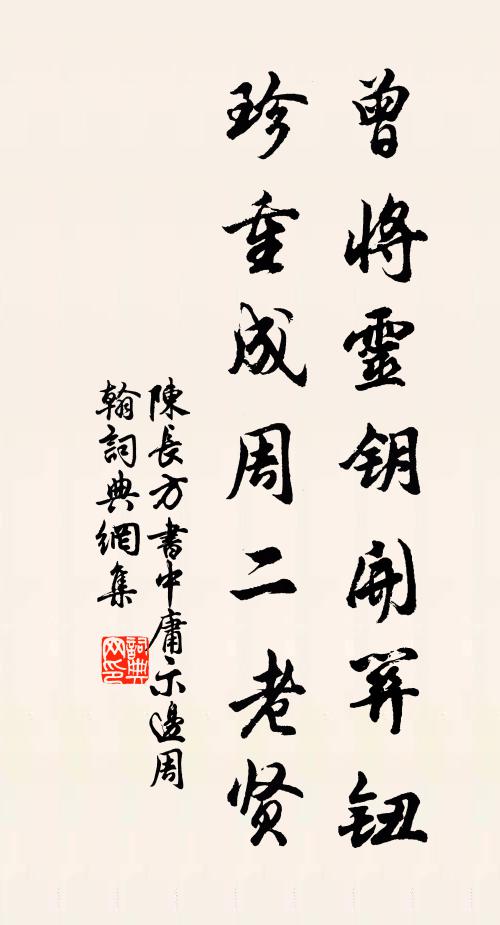 曾將靈鑰開笄鈕
珍重成周二老贤
陳長方書中庸示邊周
翰詞典網集
詞典网印